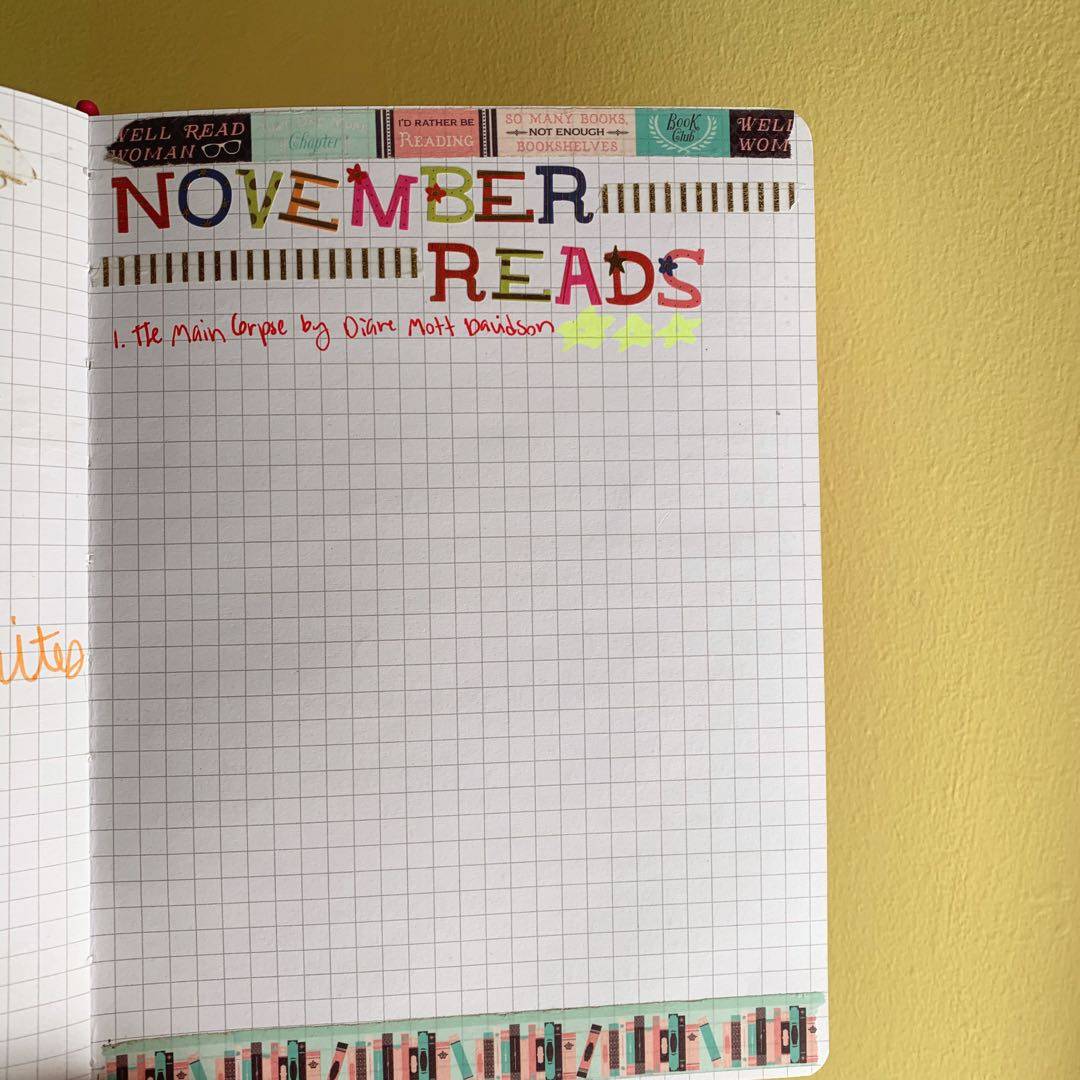 WELL READ WOMAN Chapter I'D RATHER BE READING SO MANY BOOKS, NOT ENOUGH BOOKSHELVES BOOK Club WELL WOM
NOVEMBER
READS
1. The Main Corpse by Diane Mott Davidson